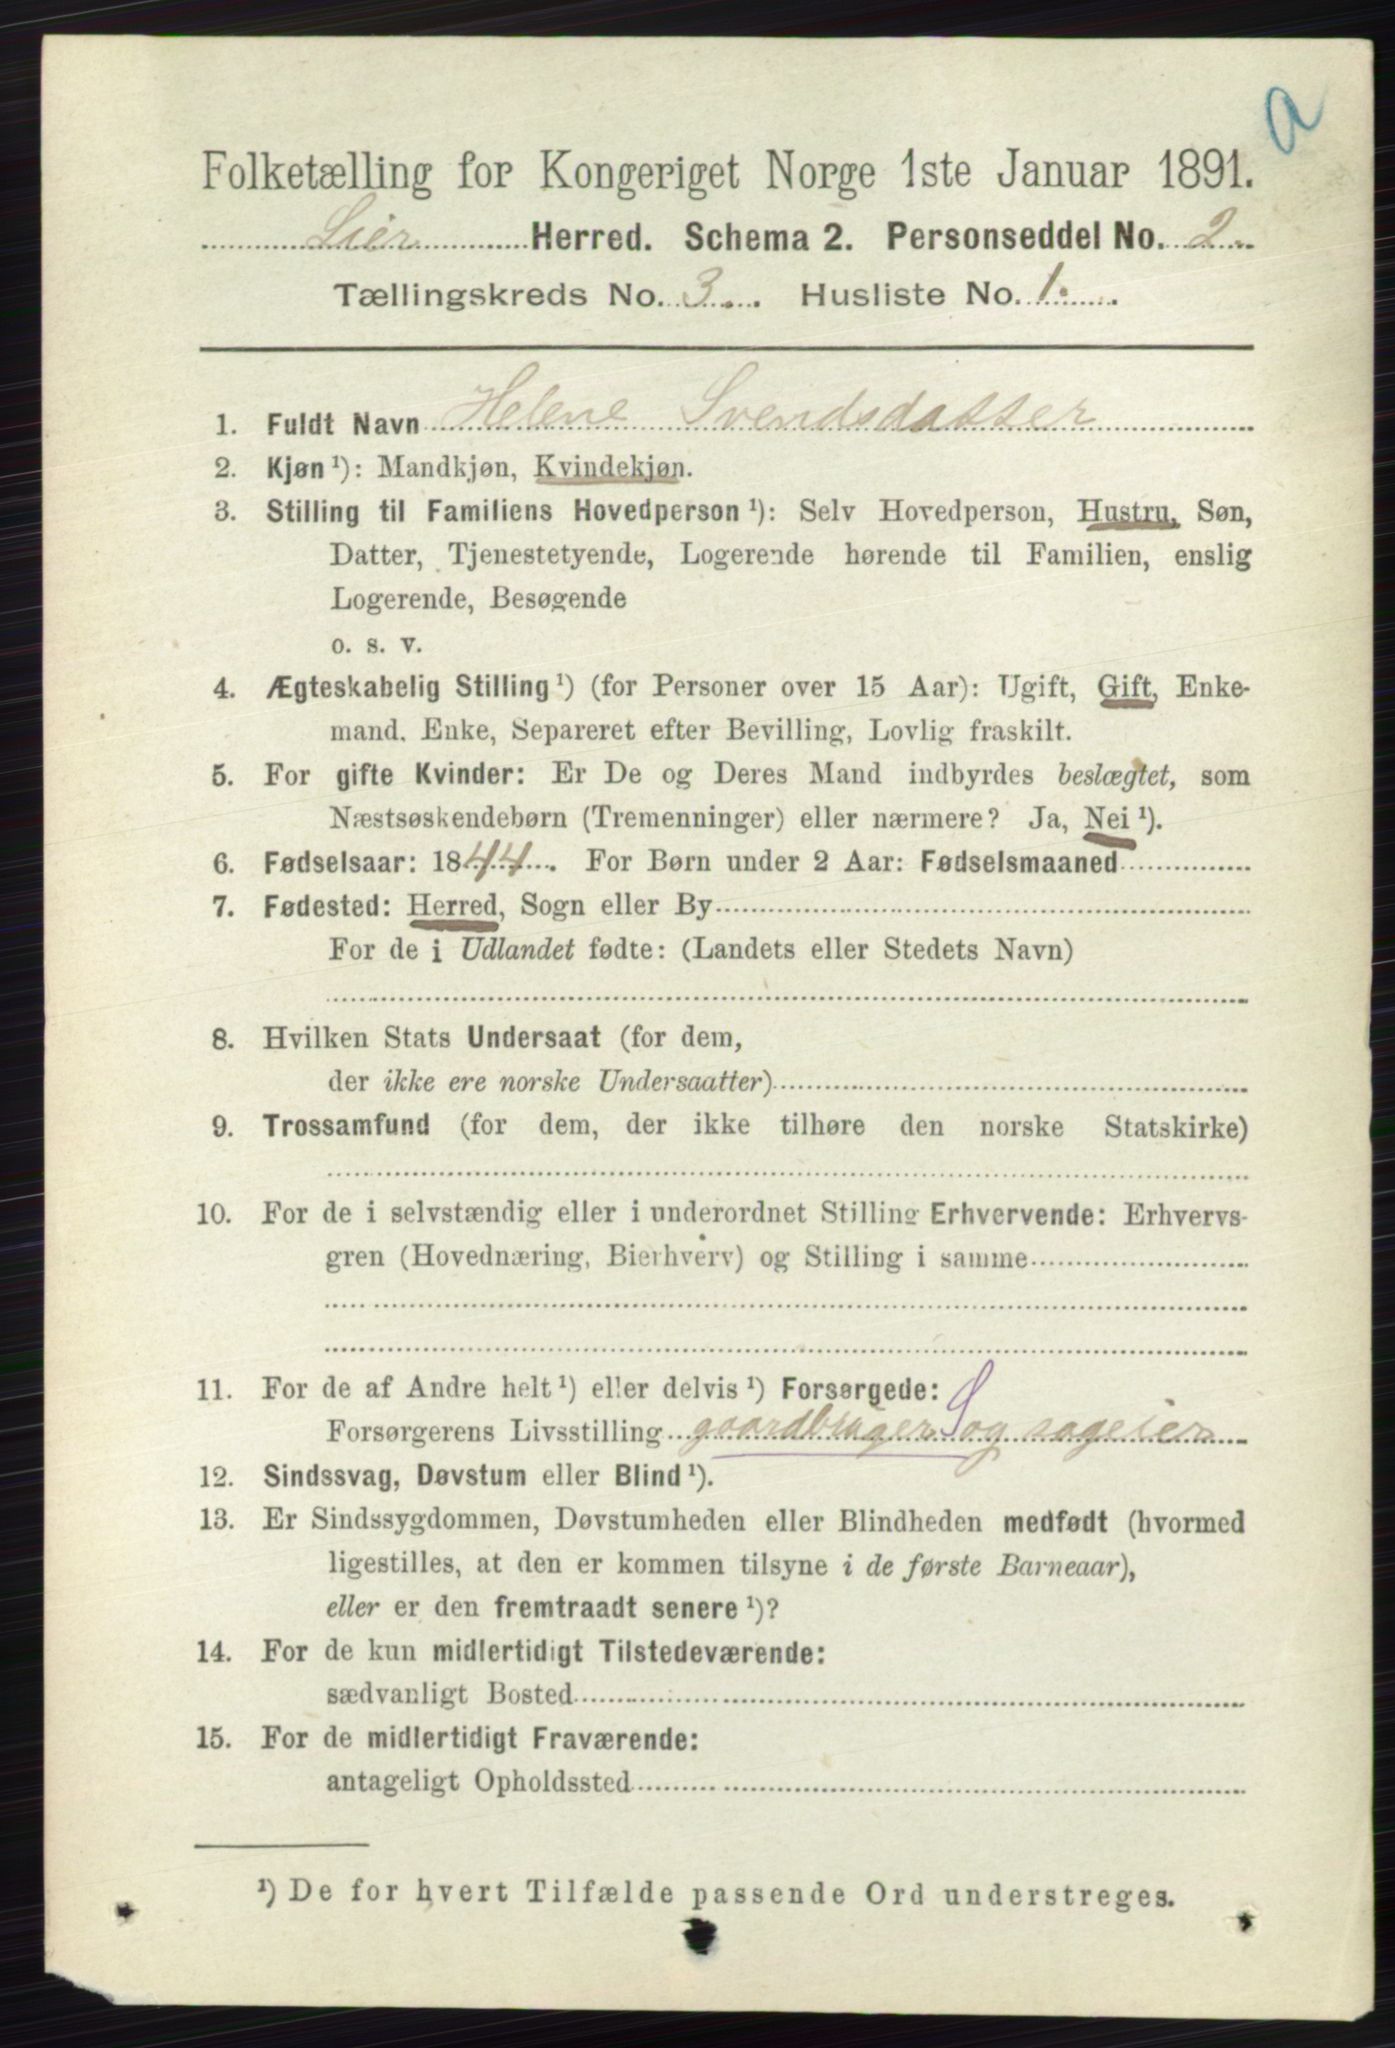 a
Folketælling for Kongeriget Norge 1ste Januar 1891.
Lier Herred. Schema 2. Personseddel No. 2.
Tællingskreds No. 3. Husliste No. 1.
1. Fuldt Navn Helene Svendsdatter
2. Kjøn ¹): Mandkjøn, Kvindekjøn.
3. Stilling til Familiens Hovedperson ¹): Selv Hovedperson, Hustru, Søn,
Datter, Tjenestetyende, Logerende hørende til Familien, enslig
Logerende, Besøgende
o. s. v.
4. Ægteskabelig Stilling ¹) (for Personer over 15 Aar): Ugift, Gift, Enke-
mand, Enke, Separeret efter Bevilling, Lovlig fraskilt.
5. For gifte Kvinder: Er De og Deres Mand indbyrdes beslægtet, som
Næstsøskendebørn (Tremenninger) eller nærmere? Ja, Nei ¹).
6. Fødselsaar: 1844. For Børn under 2 Aar: Fødselsmaaned
7. Fødested: Herred, Sogn eller By
For de i Udlandet fødte: (Landets eller Stedets Navn)
8. Hvilken Stats Undersaat (for dem,
der ikke ere norske Undersaatter)
9. Trossamfund (for dem, der ikke tilhøre den norske Statskirke)
10. For de i selvstændig eller i underordnet Stilling Erhvervende: Erhvervs-
gren (Hovednæring, Bierhverv) og Stilling i samme
11. For de af Andre helt ¹) eller delvis ¹) Forsørgede:
Forsørgerens Livsstilling gaardbruger S og sageier
12. Sindssvag, Døvstum eller Blind ¹).
13. Er Sindssygdommen, Døvstumheden eller Blindheden medfødt (hvormed
ligestilles, at den er kommen tilsyne i de første Barneaar),
eller er den fremtraadt senere ¹)?
14. For de kun midlertidigt Tilstedeværende:
sædvanligt Bosted
15. For de midlertidigt Fraværende:
antageligt Opholdssted
¹) De for hvert Tilfælde passende Ord understreges.